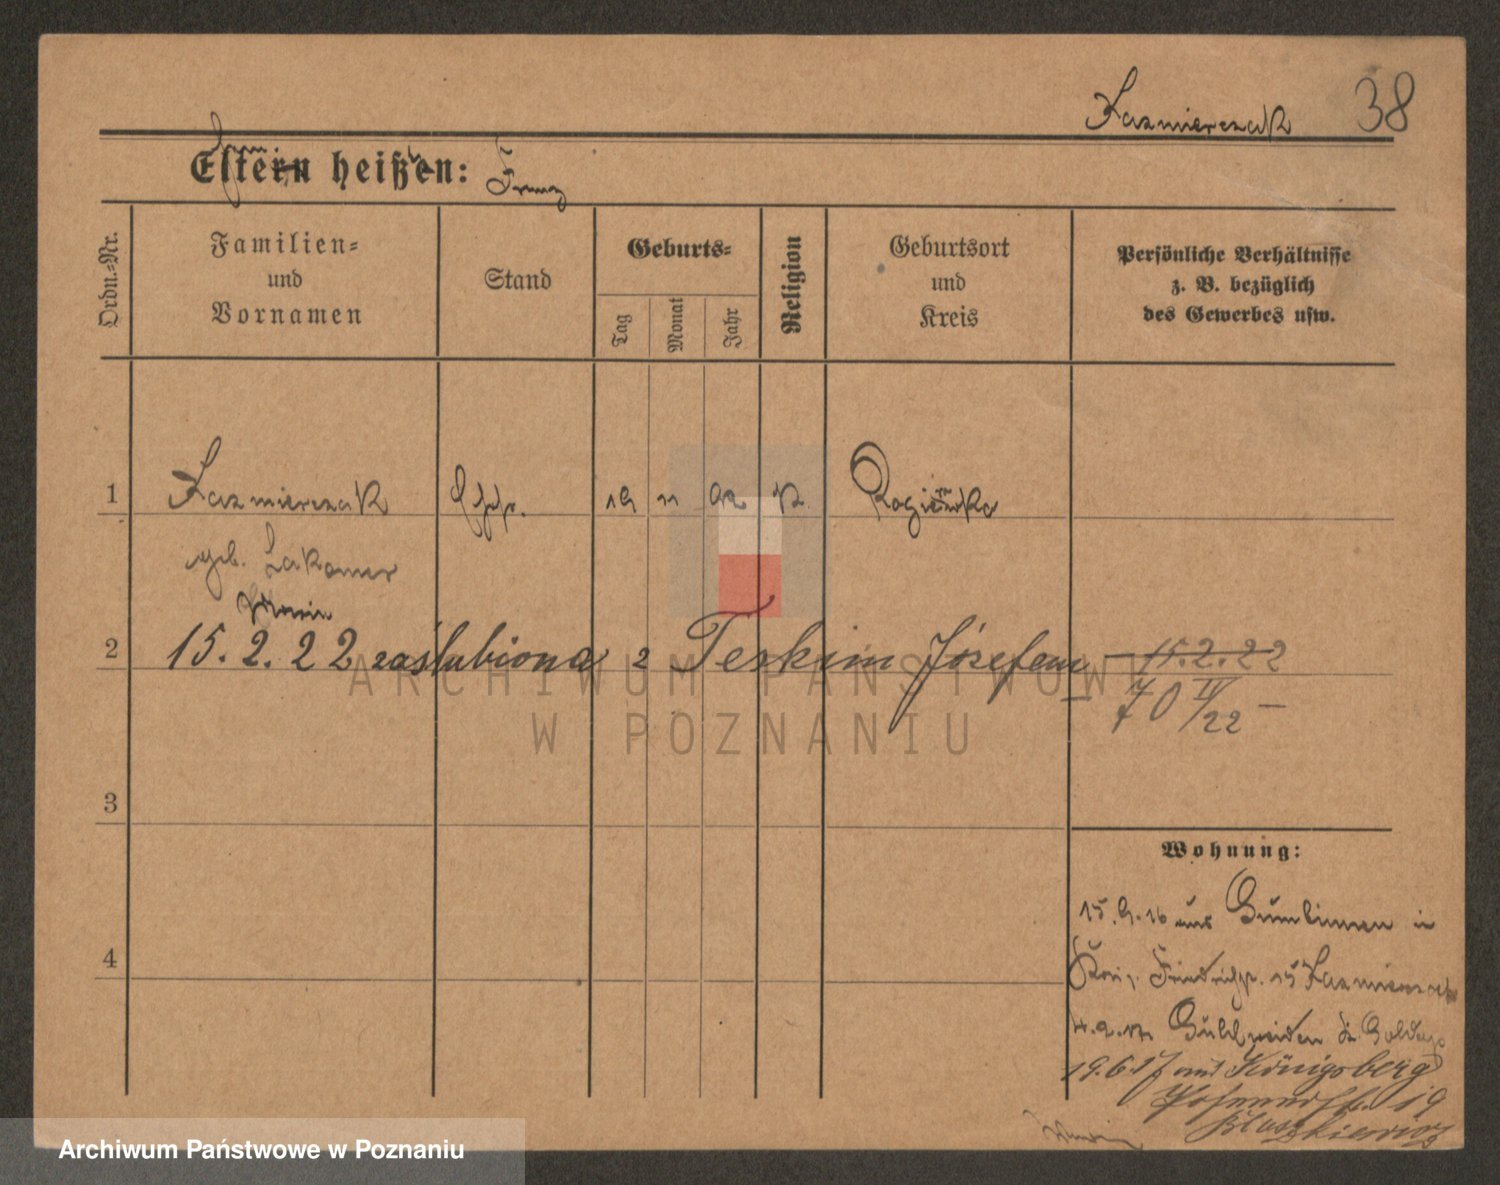 Kazmierczak 38
Eltern heißen: Franz
Ordn.-Nr.
Familien-
und
Vornamen
Stand
Geburts-
Tag
Monat
Jahr
Religion
Geburtsort
und
Kreis
Persönliche Verhältnisse
z. B. bezüglich
des Gewerbes usw.
1 Kazmierczak Ehefr. 19 11 92 K
geb. Lakomer
2 15.2.22 zaślubiona z Teskim Józefem 15.2.22
70 IV/22 —
3
Wohnung:
15.9.16 aus Gumbinnen in
4
Friedrichstr. 15 Kazmierczak
19.6.17 aus Königsberg
19
Błaszkiewicz
ARCHIWUM PAŃSTWOWE
W POZNANIU
Archiwum Państwowe w Poznaniu